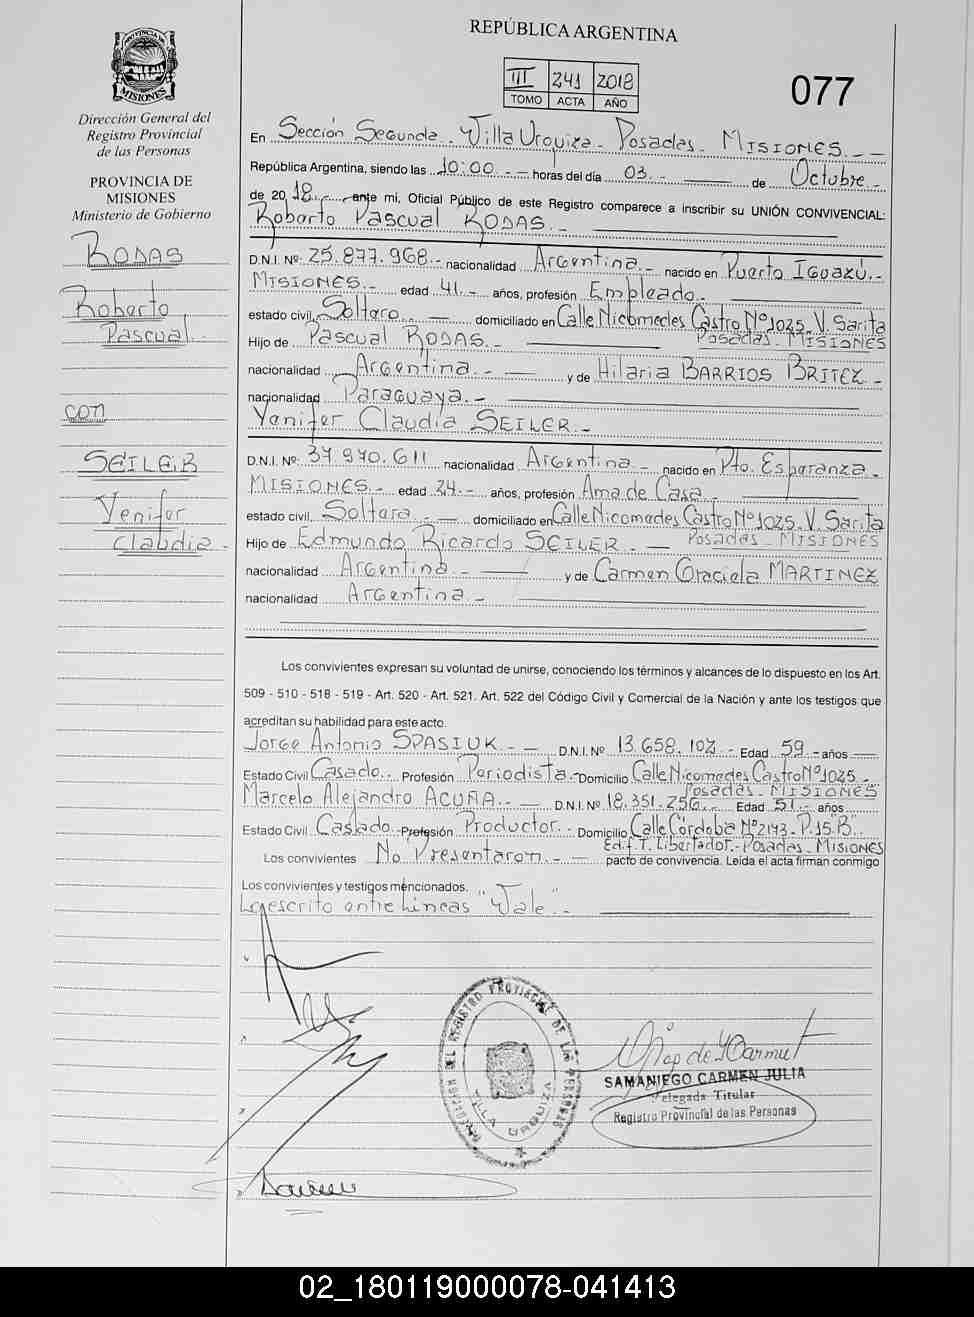 REPÚBLICA ARGENTINA
PROVINCIA DE
MISIONES
III 241 2018
TOMO ACTA AÑO
077
Dirección General del
Registro Provincial
de las Personas
PROVINCIA DE
MISIONES
Ministerio de Gobierno
RODAS
Roberto
Pascual
con
SEILER
Yenifer
Claudia.-
En Sección Segunda. Villa Urquiza - Posadas - MISIONES.-
República Argentina, siendo las 10:00.- horas del día 03.- de Octubre.-
de 20 18.- ante mi, Oficial Público de este Registro comparece a inscribir su UNIÓN CONVIVENCIAL:
Roberto Pascual RODAS.-
D.N.I. Nº: 25.877.968.- nacionalidad Argentina.- nacido en Puerto Iguazú.-
MISIONES.- edad 41.- años, profesión Empleado.-
estado civil, Soltero.- domiciliado en Calle Nicomedes Castro Nº 1025. V. Sarita
Posadas - MISIONES
Hijo de Pascual RODAS.-
nacionalidad Argentina.- y de Hilaria BARRIOS BRITEZ.-
nacionalidad Paraguaya.-
Yenifer Claudia SEILER.-
D.N.I. Nº: 37.970.611 nacionalidad Argentina.- nacido en Pto. Esperanza.-
MISIONES.- edad 24.- años, profesión Ama de Casa.-
estado civil, Soltera.- domiciliado en Calle Nicomedes Castro Nº 1025. V. Sarita
Posadas - MISIONES
Hijo de Edmundo Ricardo SEILER.-
nacionalidad Argentina.- y de Carmen Graciela MARTINEZ
nacionalidad Argentina.-
Los convivientes expresan su voluntad de unirse, conociendo los términos y alcances de lo dispuesto en los Art.
509 - 510 - 518 - 519 - Art. 520 - Art. 521. Art. 522 del Código Civil y Comercial de la Nación y ante los testigos que
acreditan su habilidad para este acto.
Jorge Antonio SPASIUK.- D.N.I. Nº 13.658.102.- Edad 59.- años
Estado Civil Casado.- Profesión Periodista.- Domicilio Calle Nicomedes Castro Nº 1025.-
Posadas - MISIONES
Marcelo Alejandro ACUÑA.- D.N.I. Nº 18.351.256.- Edad 51.- años
Estado Civil Casado.- Profesión Productor.- Domicilio Calle Córdoba Nº 2143 - P.15 "B".-
Edif. T. Libertador.- Posadas - MISIONES
Los convivientes No Presentaron.- pacto de convivencia. Leída el acta firman conmigo
Los convivientes y testigos mencionados.
Lo escrito entre Líneas "Vale".-
DIRECCION DEL REGISTRO PROVINCIAL DE LAS PERSONAS
VILLA URQUIZA
SAMANIEGO CARMEN JULIA
Delegada Titular
Registro Provincial de las Personas
02_180119000078-041413